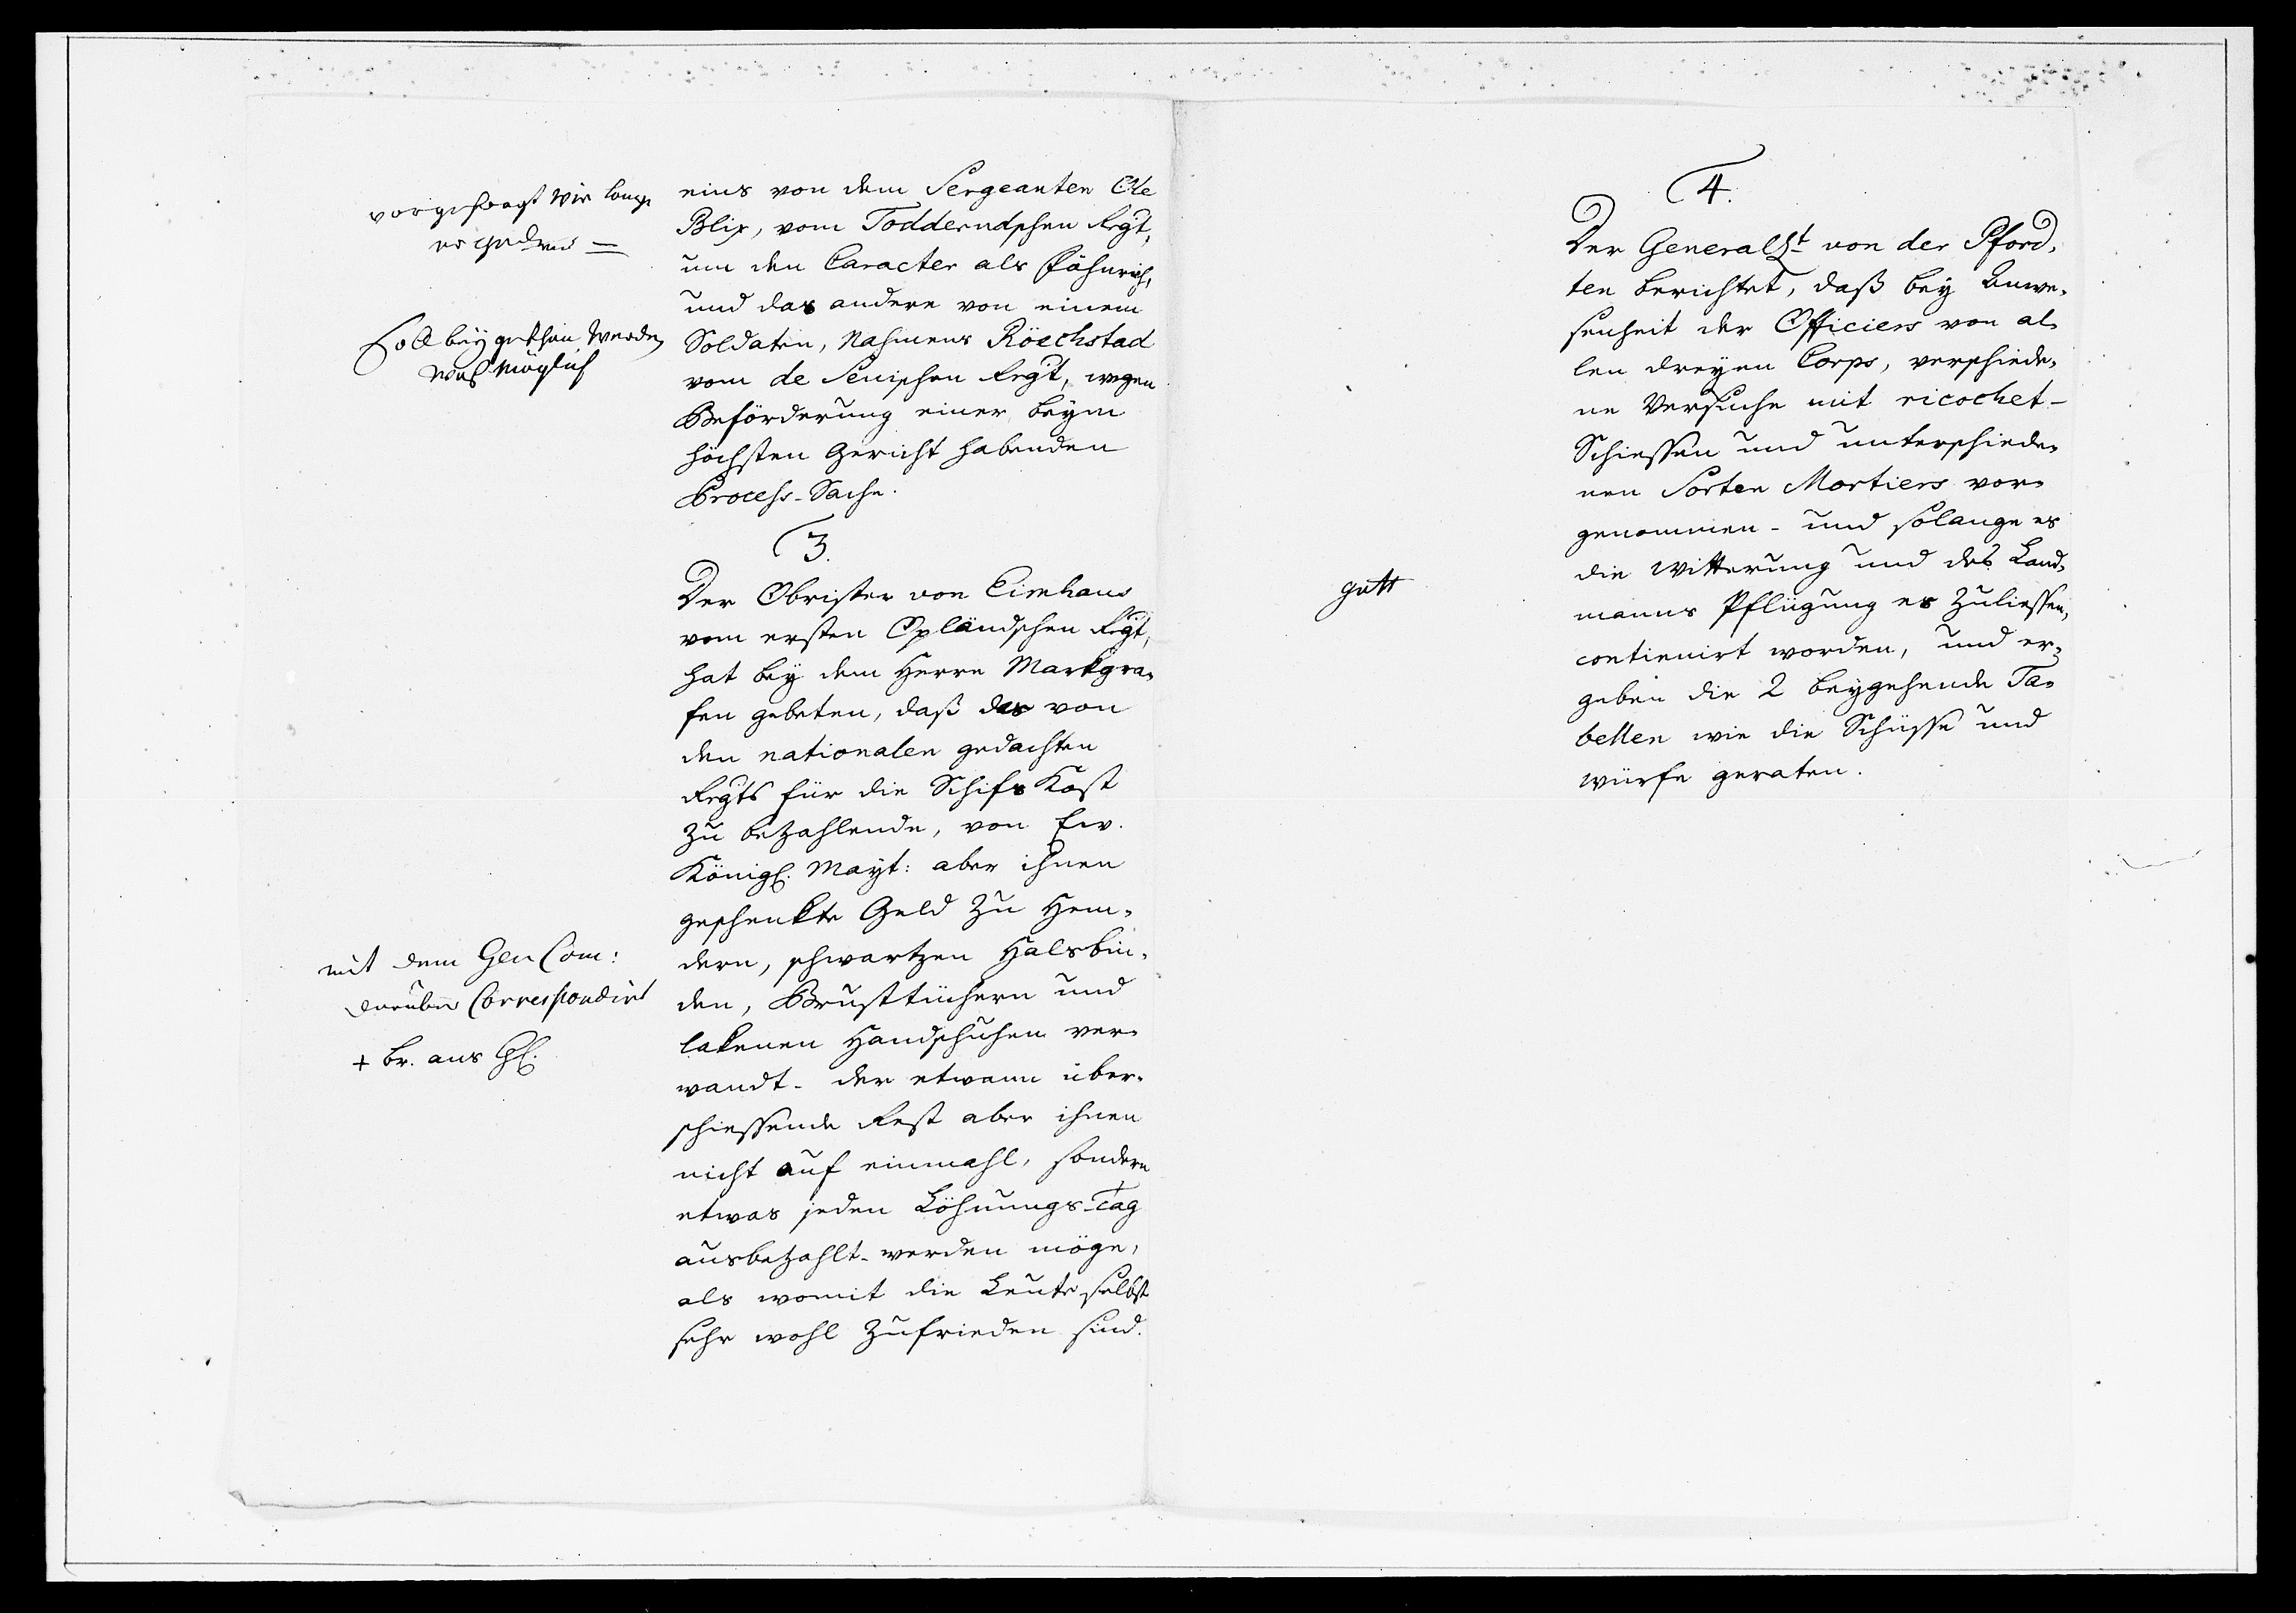 vorgefragt wie lange
er gedienet =
Soll beygethan werden
was möglich
eins von dem Sergeanten Ole
Blix, vom Todderudschen Regt,
um den Caracter als Fähnrich,
und das andere von einem
Soldaten, Nahmens Röechstad
vom de Seuischen Regt, wegen
Beförderung einer beym
höchsten Gericht habenden
Process-Sache.
3.
Der Obrister von Eimhaus
vom ersten Opländschen Regt,
hat bey dem Herrn Markgra-
fen gebeten, daß das von
den nationalen gedachten
Regts für die Schifs Kost
zu bezahlende, von Ew.
Königl. Mayt: aber ihnen
geschenkte Geld zu Hem-
dern, schwartzen Halsbin-
den, Brusttüchern und
lakenen Handschuhen ver-
wandt- der etwann über-
schiessende Rest aber ihnen
nicht auf einmahl, sondern
etwas jeden Löhnungs-Tag
ausbezahlt- werden möge,
als womit die Leute selbst
sehr wohl zufrieden sind.
mit dem Gen Com:
darüber Correspondirt
+ br. aus
4.
Der Generallt von der Pford-
ten berichtet, daß bey Anwe-
senheit der Officiers von al-
len dreyen Corps, verschiede-
ne Versuche mit ricochet-
Schiessen und unterschiede-
nen Sorten Mortiers vor-
genommen- und solange es
die Witterung und des Land-
manns Pflügung es zuliessen,
contienirt worden, und er-
geben die 2 beygehende Ta-
bellen wie die Schüsse und
würfe geraten.
gutt